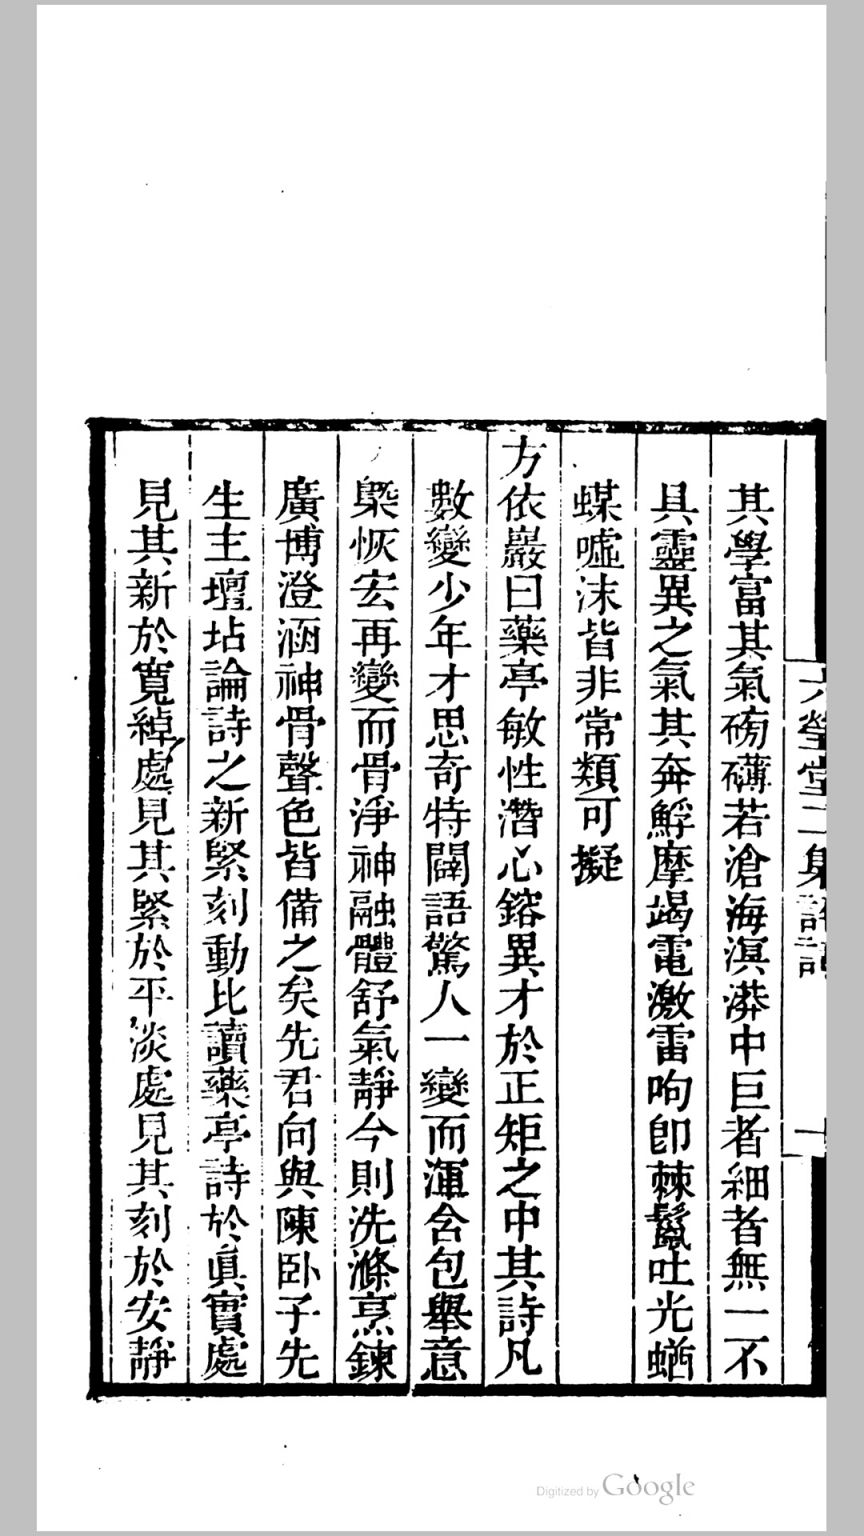 其學富其氣磅礴若滄海溟漭中巨者細者無一不
具靈異之氣其奔鯙摩竭電激雷呴卽棘鬣吐光蝤
蝶噓沫皆非常類可擬
方依巖曰藥亭敏性潛心鎔異才於正矩之中其詩凡
數變少年才思奇特闢語驚人一變而渾含包舉意
㮣恢宏再變而骨淨神融體舒氣靜今則洗滌烹鍊
廣博澄涵神骨聲色皆備之矣先君向與陳臥子先
生主壇坫論詩之新緊刻動比讀藥亭詩於眞實處
見其新於寬綽處見其緊於平淡處見其刻於安靜
六瑩堂二集
Digitized by Google